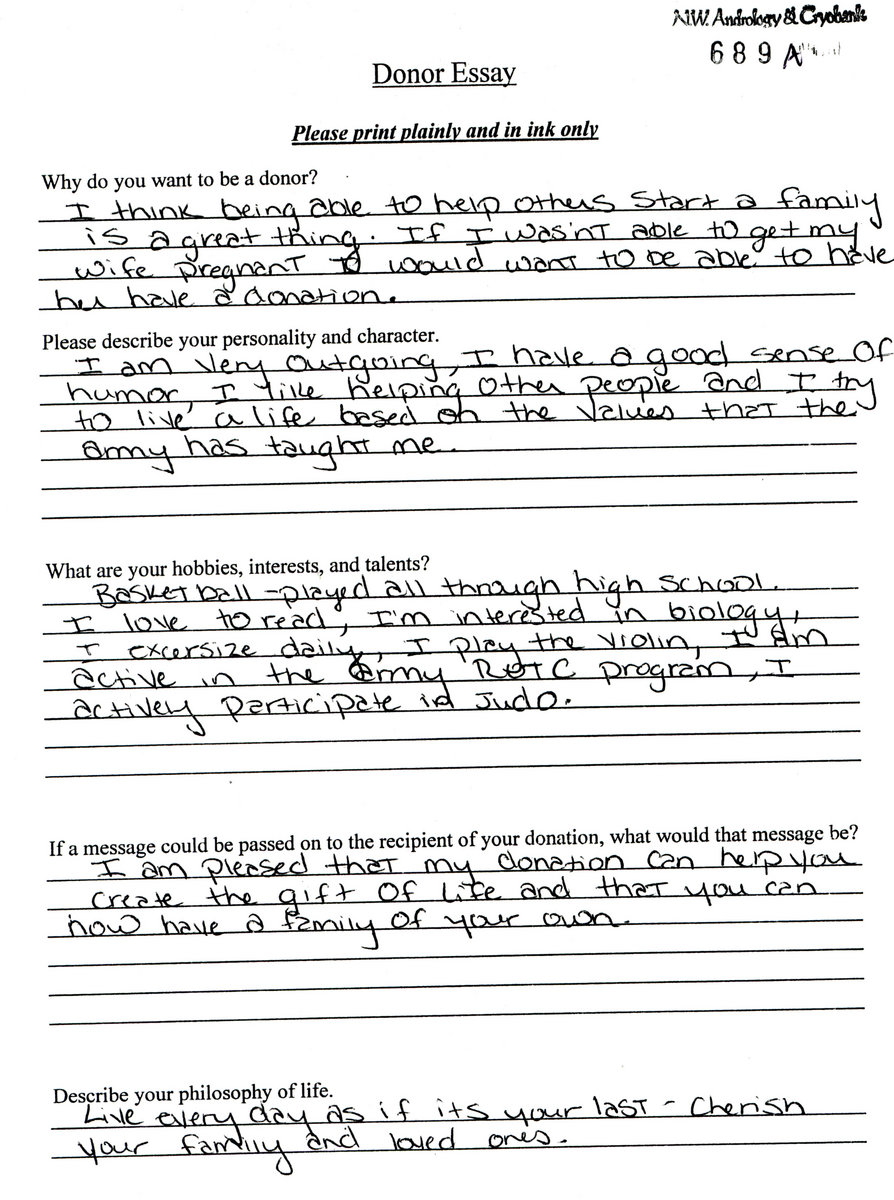 N.W. Andrology & Cryobank
689A
Donor Essay
Please print plainly and in ink only
Why do you want to be a donor?
I think being able to help others start a family
is a great thing. If I was'nt able to get my
wife pregnant I would want to be able to have
her have a donation.
Please describe your personality and character.
I am very outgoing, I have a good sense of
humor, I like helping other people and I try
to live a life based on the values that the
army has taught me.
What are your hobbies, interests, and talents?
Basketball - played all through high school.
I love to read, I'm interested in biology,
I excersize daily, I play the violin, I am
active in the army ROTC program, I
activey participate in Judo.
If a message could be passed on to the recipient of your donation, what would that message be?
I am pleased that my donation can help you
create the gift of life and that you can
now have a family of your own.
Describe your philosophy of life.
Live every day as if its your last - Cherish
your family and loved ones.